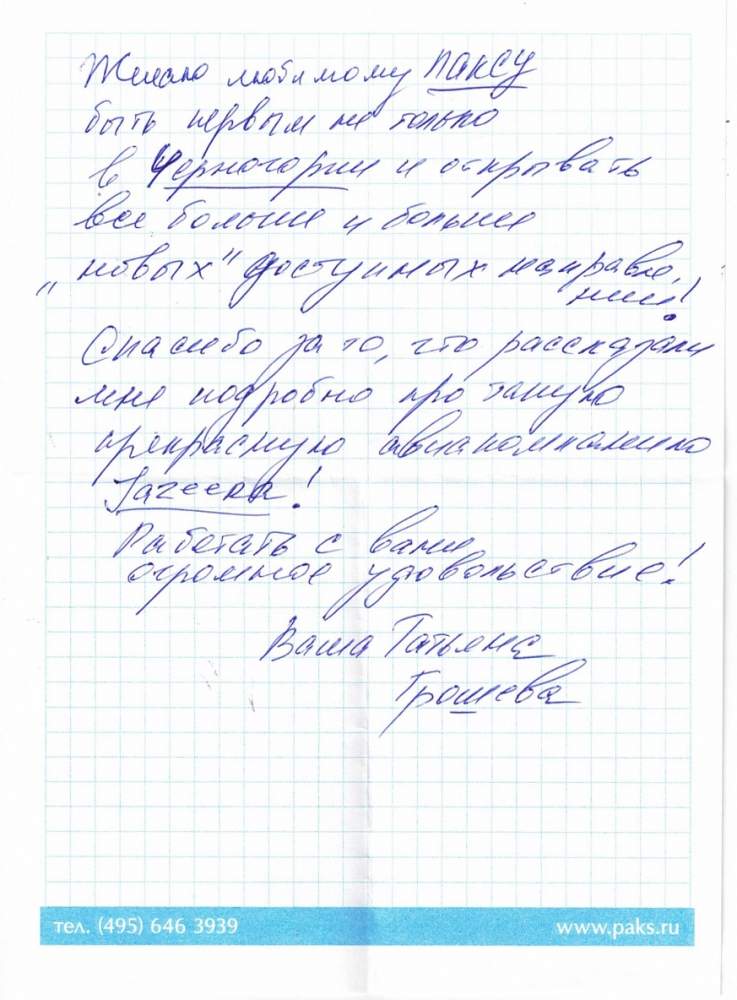 Желаю любимому ПАКСУ
быть первым не только
в Черногории и открывать
все больше и больше
„новых" доступных направле,
ний!
Спасибо за то, что рассказали
мне подробно про такую
прекрасную авиакомпанию
Jazeera!
Работать с вами
огромное удовольствие!
Ваша Татьяна
Грошева
тел. (495) 646 3939
www.paks.ru